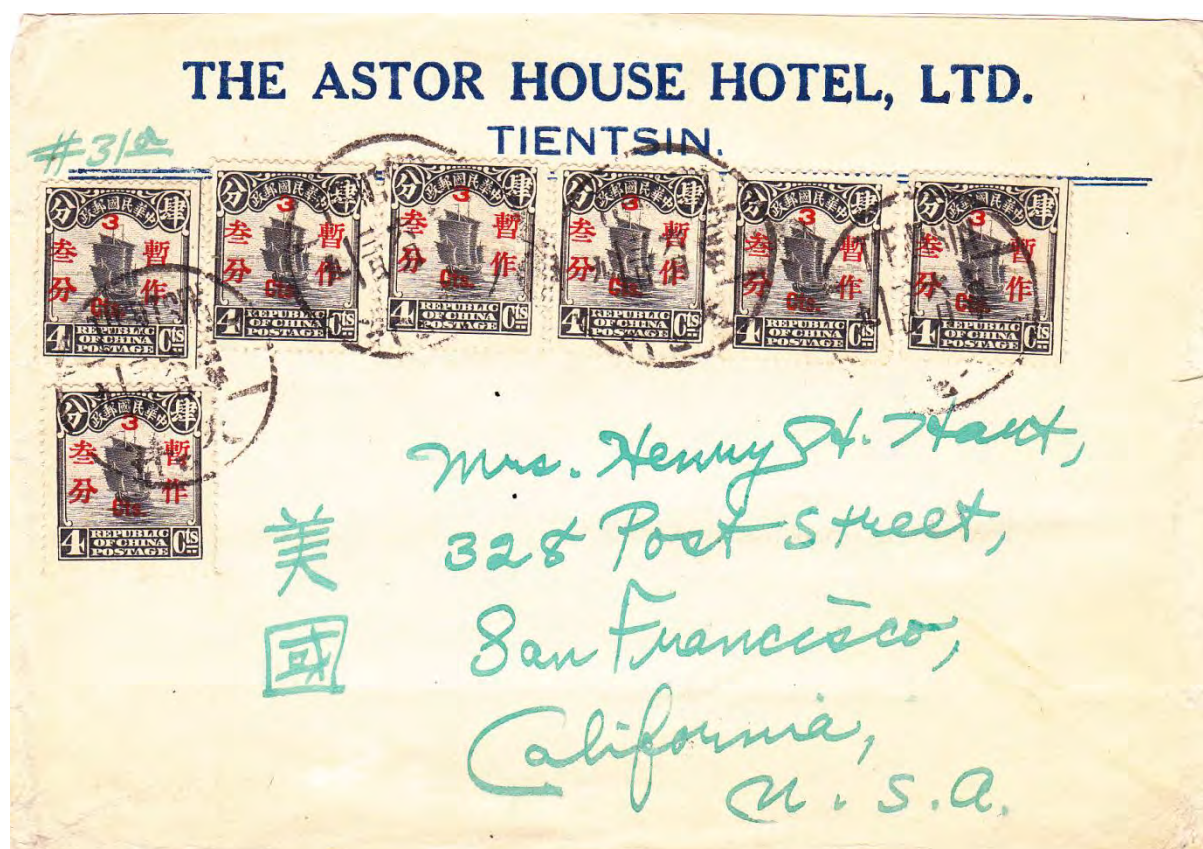 THE ASTOR HOUSE HOTEL, LTD.
TIENTSIN.
#31a
肆分
中華民國郵政
3
暫作
叁分
Cts.
4 REPUBLIC OF CHINA POSTAGE Cts
肆分
中華民國郵政
3
暫作
叁分
Cts.
4 REPUBLIC OF CHINA POSTAGE Cts
肆分
中華民國郵政
3
暫作
叁分
Cts.
4 REPUBLIC OF CHINA POSTAGE Cts
肆分
中華民國郵政
3
暫作
叁分
Cts.
4 REPUBLIC OF CHINA POSTAGE Cts
肆分
中華民國郵政
3
暫作
叁分
Cts.
4 REPUBLIC OF CHINA POSTAGE Cts
肆分
中華民國郵政
3
暫作
叁分
Cts.
4 REPUBLIC OF CHINA POSTAGE Cts
肆分
中華民國郵政
3
暫作
叁分
Cts.
4 REPUBLIC OF CHINA POSTAGE Cts
美國
Mrs. Henry H. Hart,
328 Post Street,
San Francisco,
California,
U.S.A.